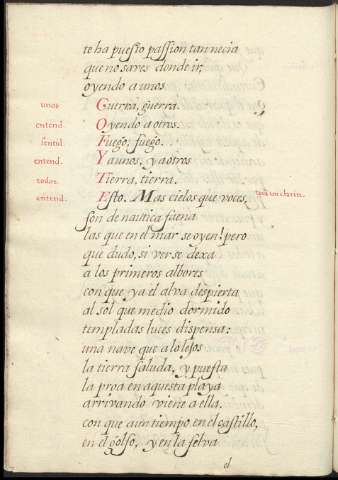 te ha puesto passion tan necia
que no sabes donde ir;
oyendo a unos
unos Guerra, guerra.
entend. Oyendo a otros.
sentid. Fuego, fuego.
entend. Y a unos, y a otros
todos. Tierra, tierra.
entend. Esto. Mas cielos que voces, toca un clarin.
son de nautica faena
las que en el mar se oyen! pero
que dudo, si ver se dexa
a los primeros albores
con que ya el alva despierta
al sol que medio dormido
templadas luces dispensa:
una nave que a lo lejos
la tierra saluda, y puesta
la proa en aquesta playa
arrivando viene a ella.
con que a un tiempo en el castillo,
en el golfo, y en la selva
el